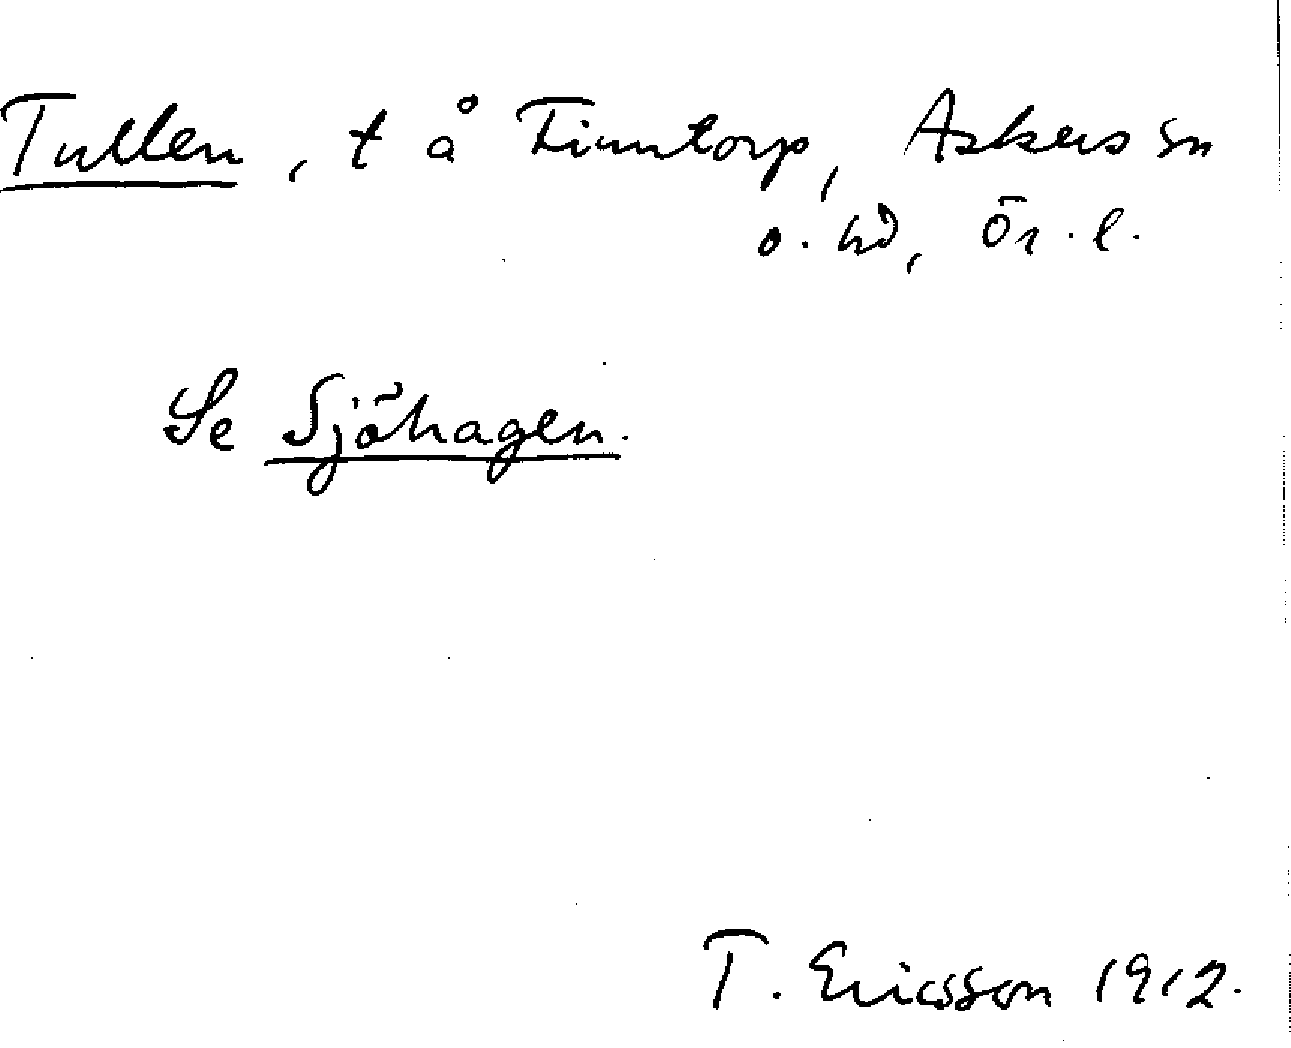 Tullen, t å Finntorp, Askers sn
o. hd, Ör. l.
Se Sjöhagen.
T. Ericsson 1912.